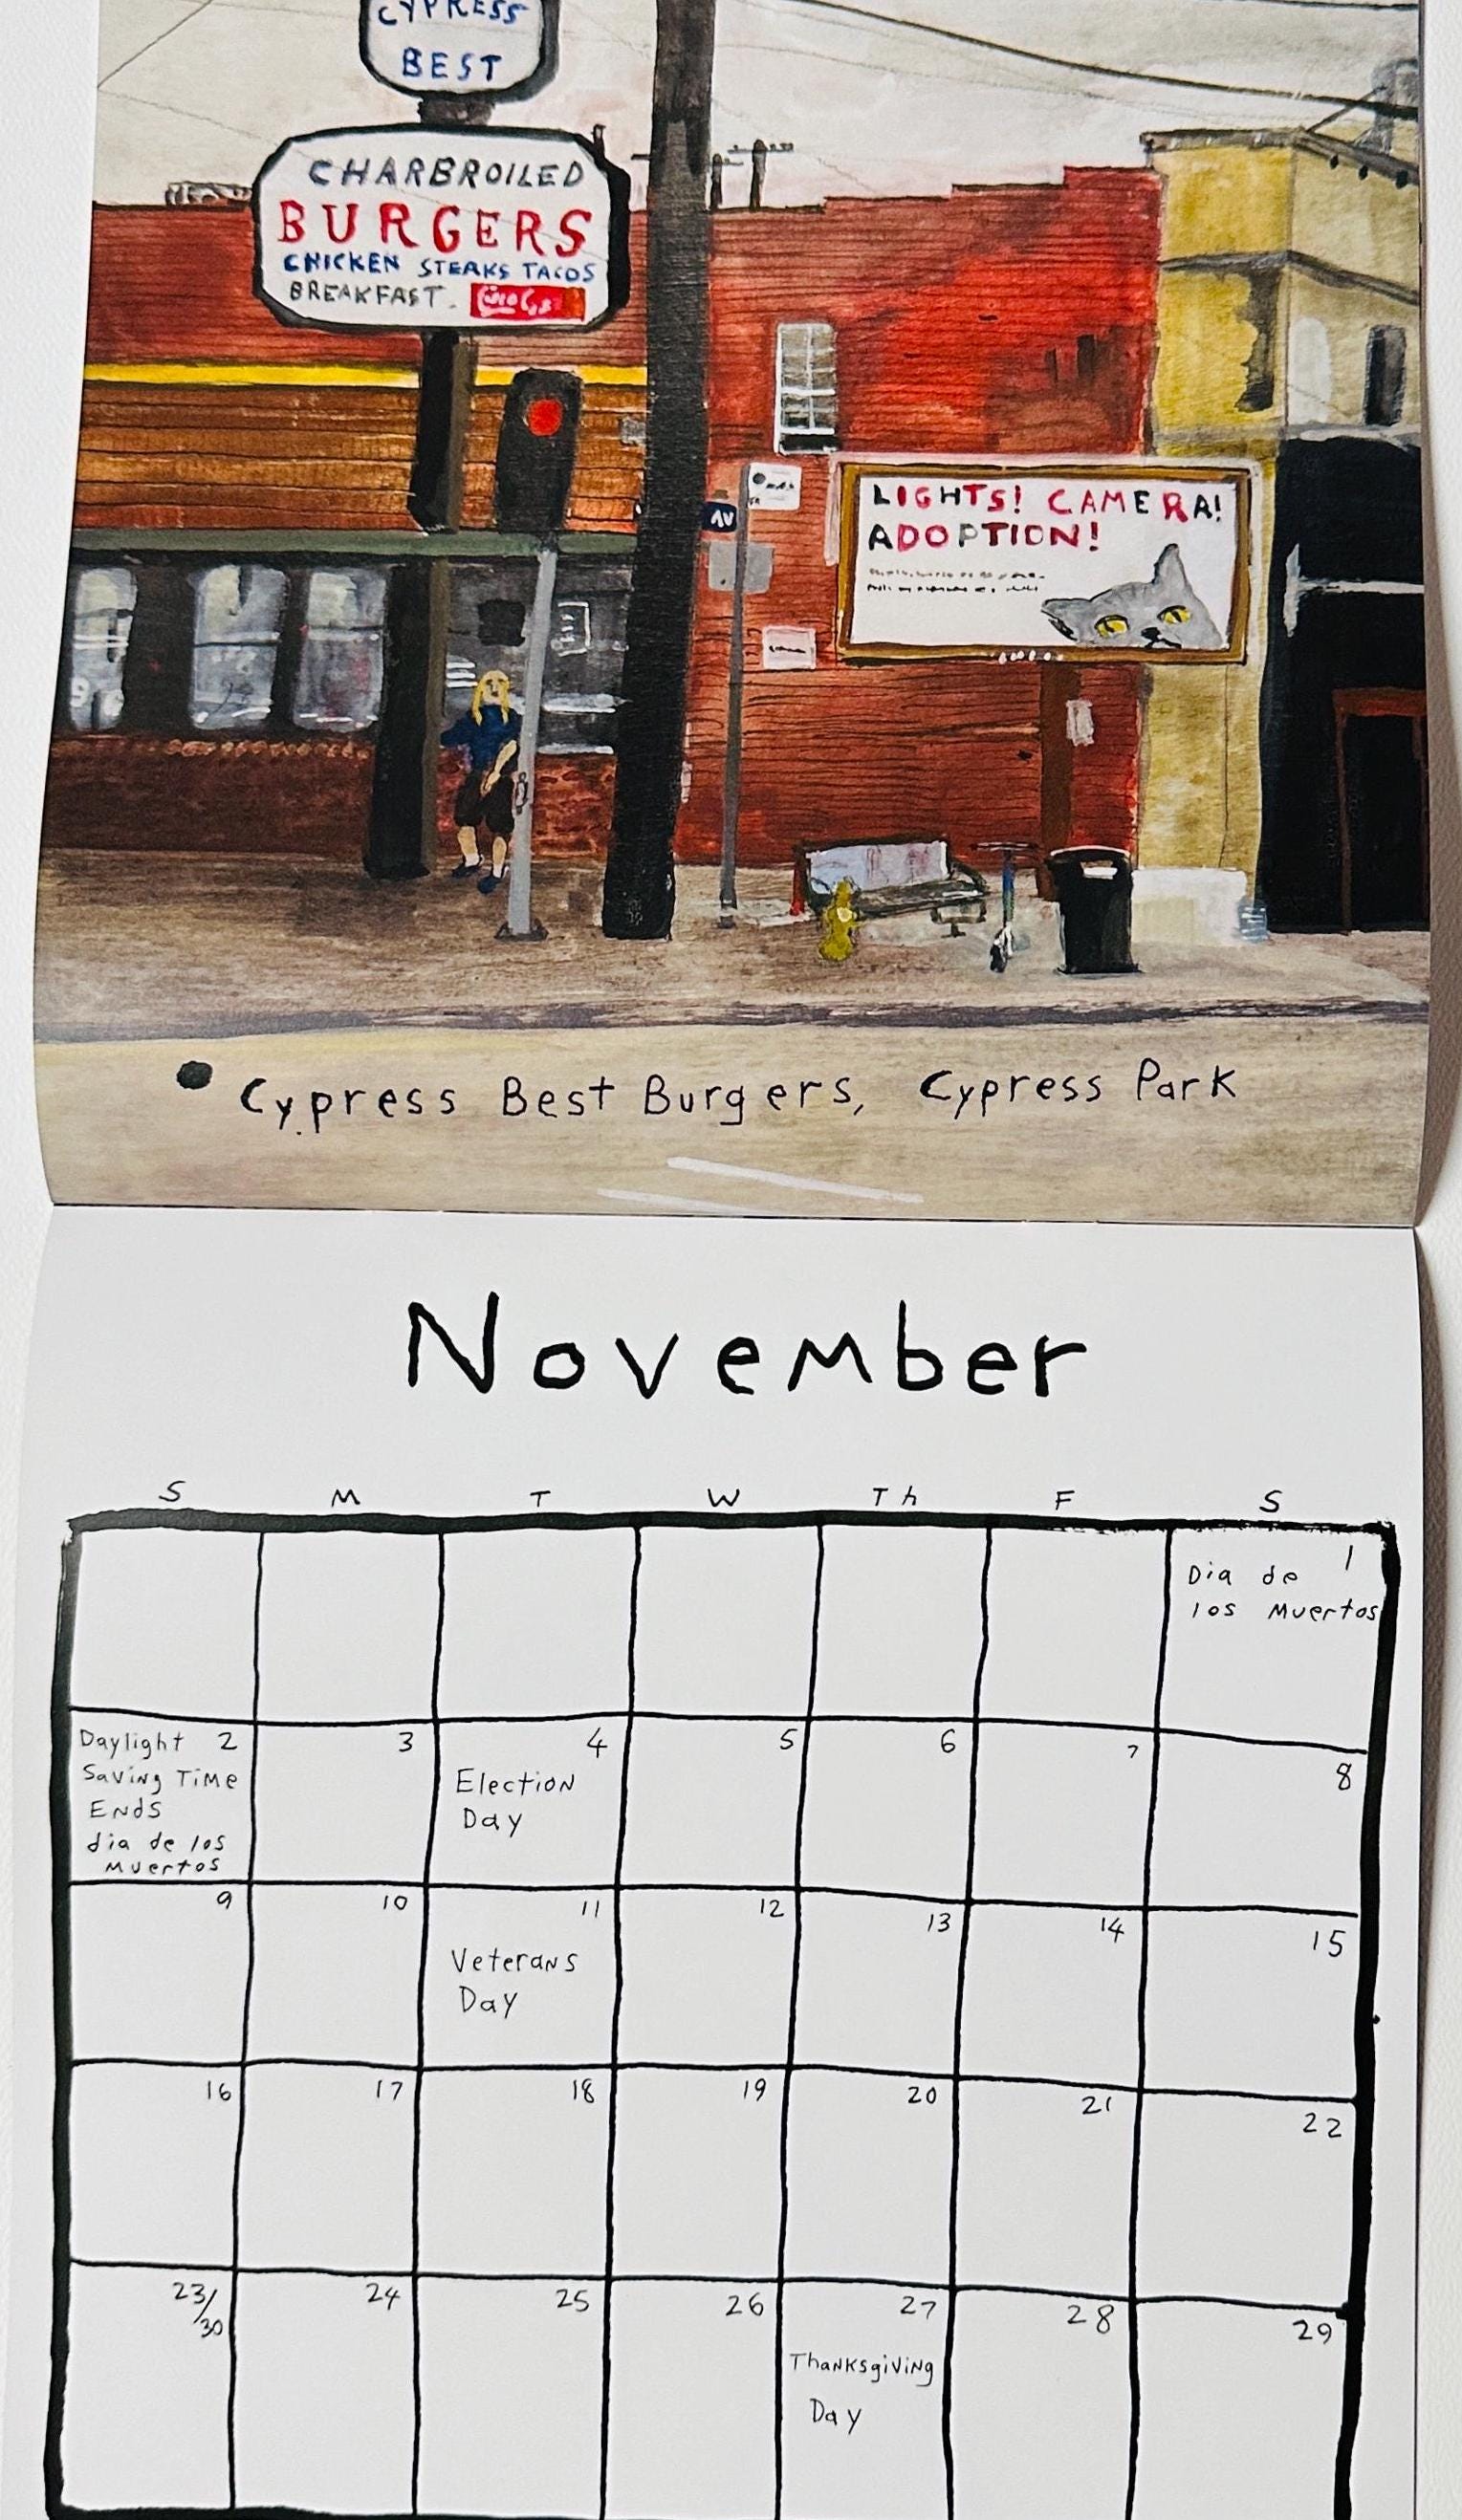 CYPRESS
BEST
CHARBROILED
BURGERS
CHICKEN STEAKS TACOS
BREAKFAST.
AV
LIGHTS! CAMERA!
ADOPTION!
Cypress Best Burgers, Cypress Park
November
S M T W Th F S
1
Dia de
los Muertos
Daylight 2 3 4 5 6 7 8
Saving Time
Ends
dia de los
Muertos
Election
Day
9 10 11 12 13 14 15
Veterans
Day
16 17 18 19 20 21 22
23/30 24 25 26 27 28 29
Thanksgiving
Day